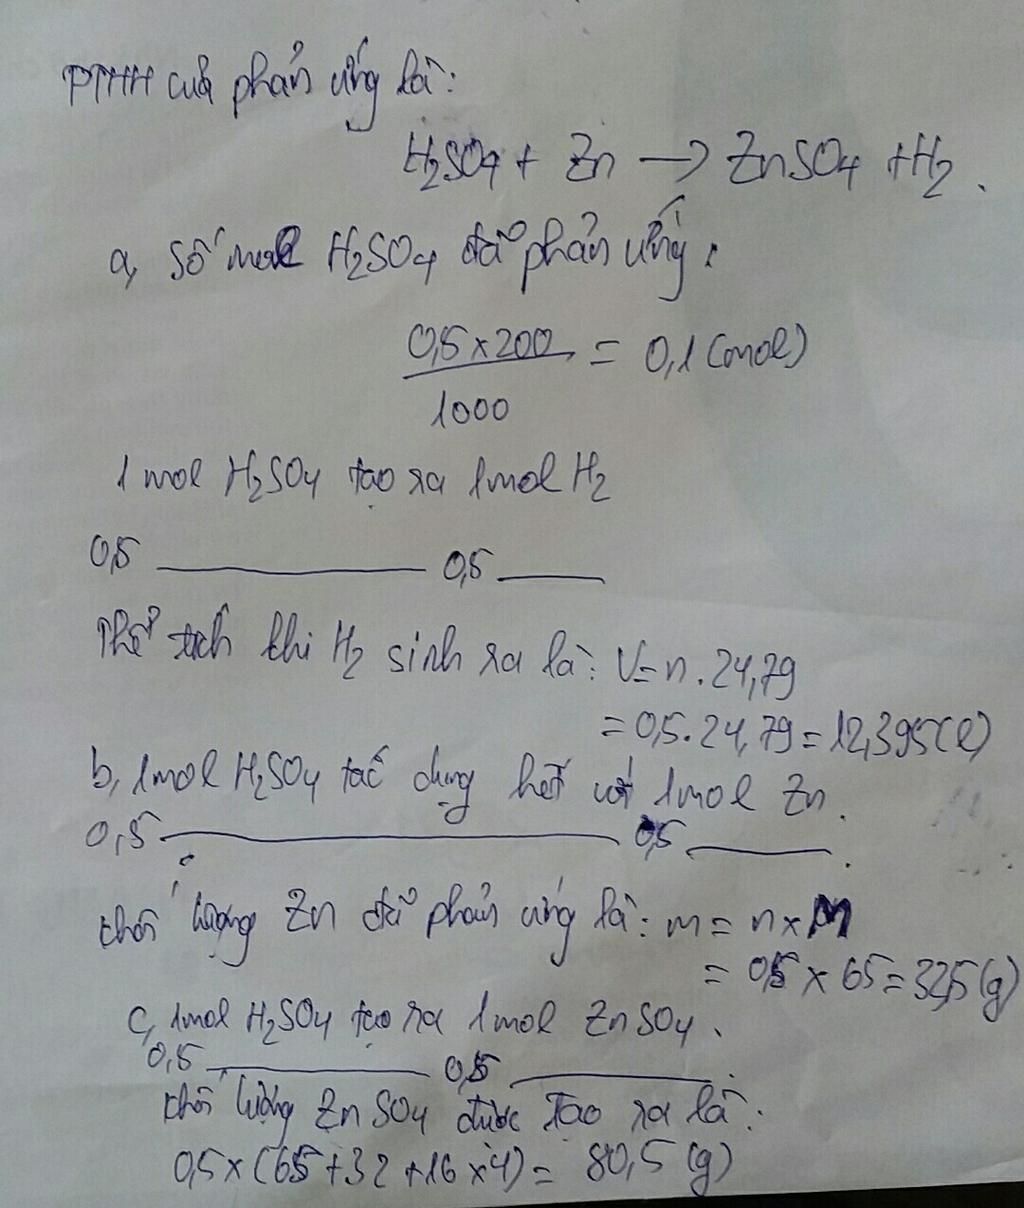 PTHH của phản ứng là:
H₂SO₄ + Zn → ZnSO₄ + H₂.
a, Số mol H₂SO₄ đã phản ứng:
0,5 x 200 / 1000 = 0,1 (mol)
1 mol H₂SO₄ tạo ra 1 mol H₂
0,5 —— 0,5 ——
Thể tích khi H₂ sinh ra là: V = n . 24,79
= 0,5 . 24,79 = 12,395 (l)
b, 1 mol H₂SO₄ tác dụng hết với 1 mol Zn.
0,5 —— 0,5 ——.
khối lượng Zn đã phản ứng là: m = n x M
= 0,5 x 65 = 32,5 (g)
c, 1 mol H₂SO₄ tạo ra 1 mol ZnSO₄.
0,5 —— 0,5 ——.
khối lượng ZnSO₄ được tạo ra là:
0,5 x (65 + 32 + 16 x 4) = 80,5 (g)